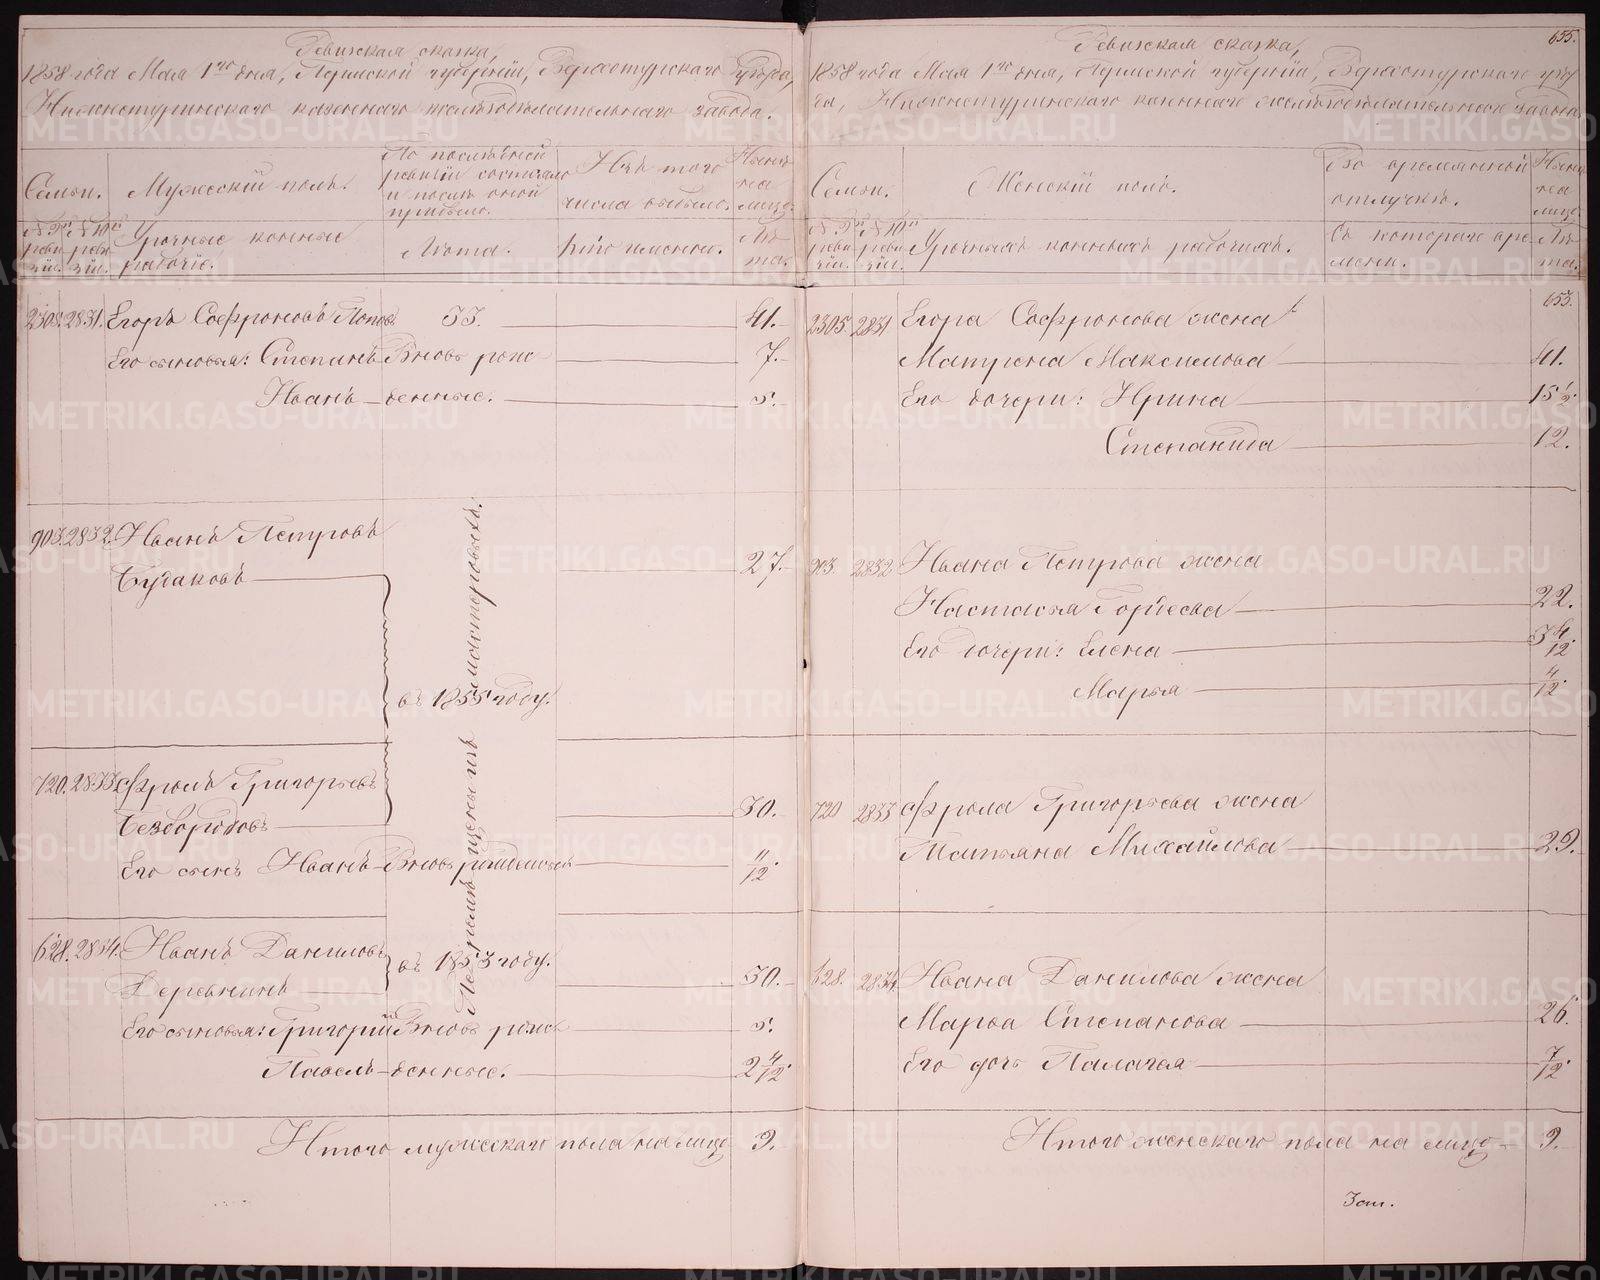 Ревизская сказка,
1858 года Мая 1го дня, Пермской губернiи, Верхотурскаго уѣзда,
Нижнетуринскаго казеннаго желѣзодѣлательнаго завода.
Семьи.
Мужескiй полъ.
По послѣдней ревизiи состояло и послѣ оной прибыло.
Изъ того числа выбыло.
Нынѣ на лицо.
№ 9й ревизiи.
№ 10й ревизiи.
Урочные конные рабочiе.
Лѣта.
Лѣта.
2305. 2831. Егоръ Софроновъ Поповъ 33. 41.
Его сыновья: Степанъ Вновь рож- 7.
Иванъ -денные. 5.
903. 2832. Иванъ Петровъ
Бугаковъ 27.
въ 1855 году.
720. 2833. Фролъ Григорьевъ
Безбородовъ 30.
Его сынъ Иванъ Вновь рожденный 11/12.
628. 2834. Иванъ Даниловъ въ 1853 году.
Деревнинъ 30.
Его сыновья: Григорiй Вновь рож- 5.
Павелъ -денные. 2 4/12.
мастеровыхъ.
Итого мужескаго пола на лицо 9.
655.
Ревизская сказка,
1858 года Мая 1го дня, Пермской губернiи, Верхотурскаго уѣз-
да, Нижнетуринскаго казеннаго желѣзодѣлательнаго завода.
Семьи.
Женскiй полъ.
Во временной отлучкѣ.
Нынѣ на лицо.
№ 9й ревизiи.
№ 10й ревизiи.
Урочныхъ конныхъ рабочихъ.
Съ котораго времени.
Лѣта.
653.
2305 2831 Егора Софронова жена
Матрена Максимова 41.
Его дочери: Ирина 15 1/2.
Степанида 12.
903. 2832 Ивана Петрова жена
Настасья Гордѣева 22.
Его дочери: Елена 3 4/12.
Марья 4/12.
720 2833 Фрола Григорьева жена
Татьяна Михайлова 29.
628. 2834 Ивана Данилова жена
Марья Степанова 26.
Его дочь Палагея 7/12.
Итого женскаго пола на лицо 9.
METRIKI.GASO-URAL.RU